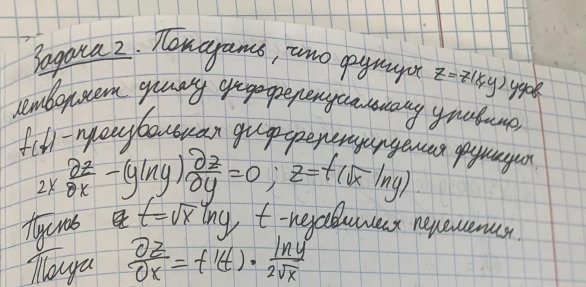 Задача 2. Показать, что функция z=z(x,y) удов
летворяет дифференциальному уравнению,
f(t) - произвольная дифференцируемая функция.
2x ∂z/∂x - (y ln y) ∂z/∂y = 0; z = f(√x ln y).
Пусть t = √x ln y, t - независимая переменная.
Тогда ∂z/∂x = f'(t) · ln y/2√x